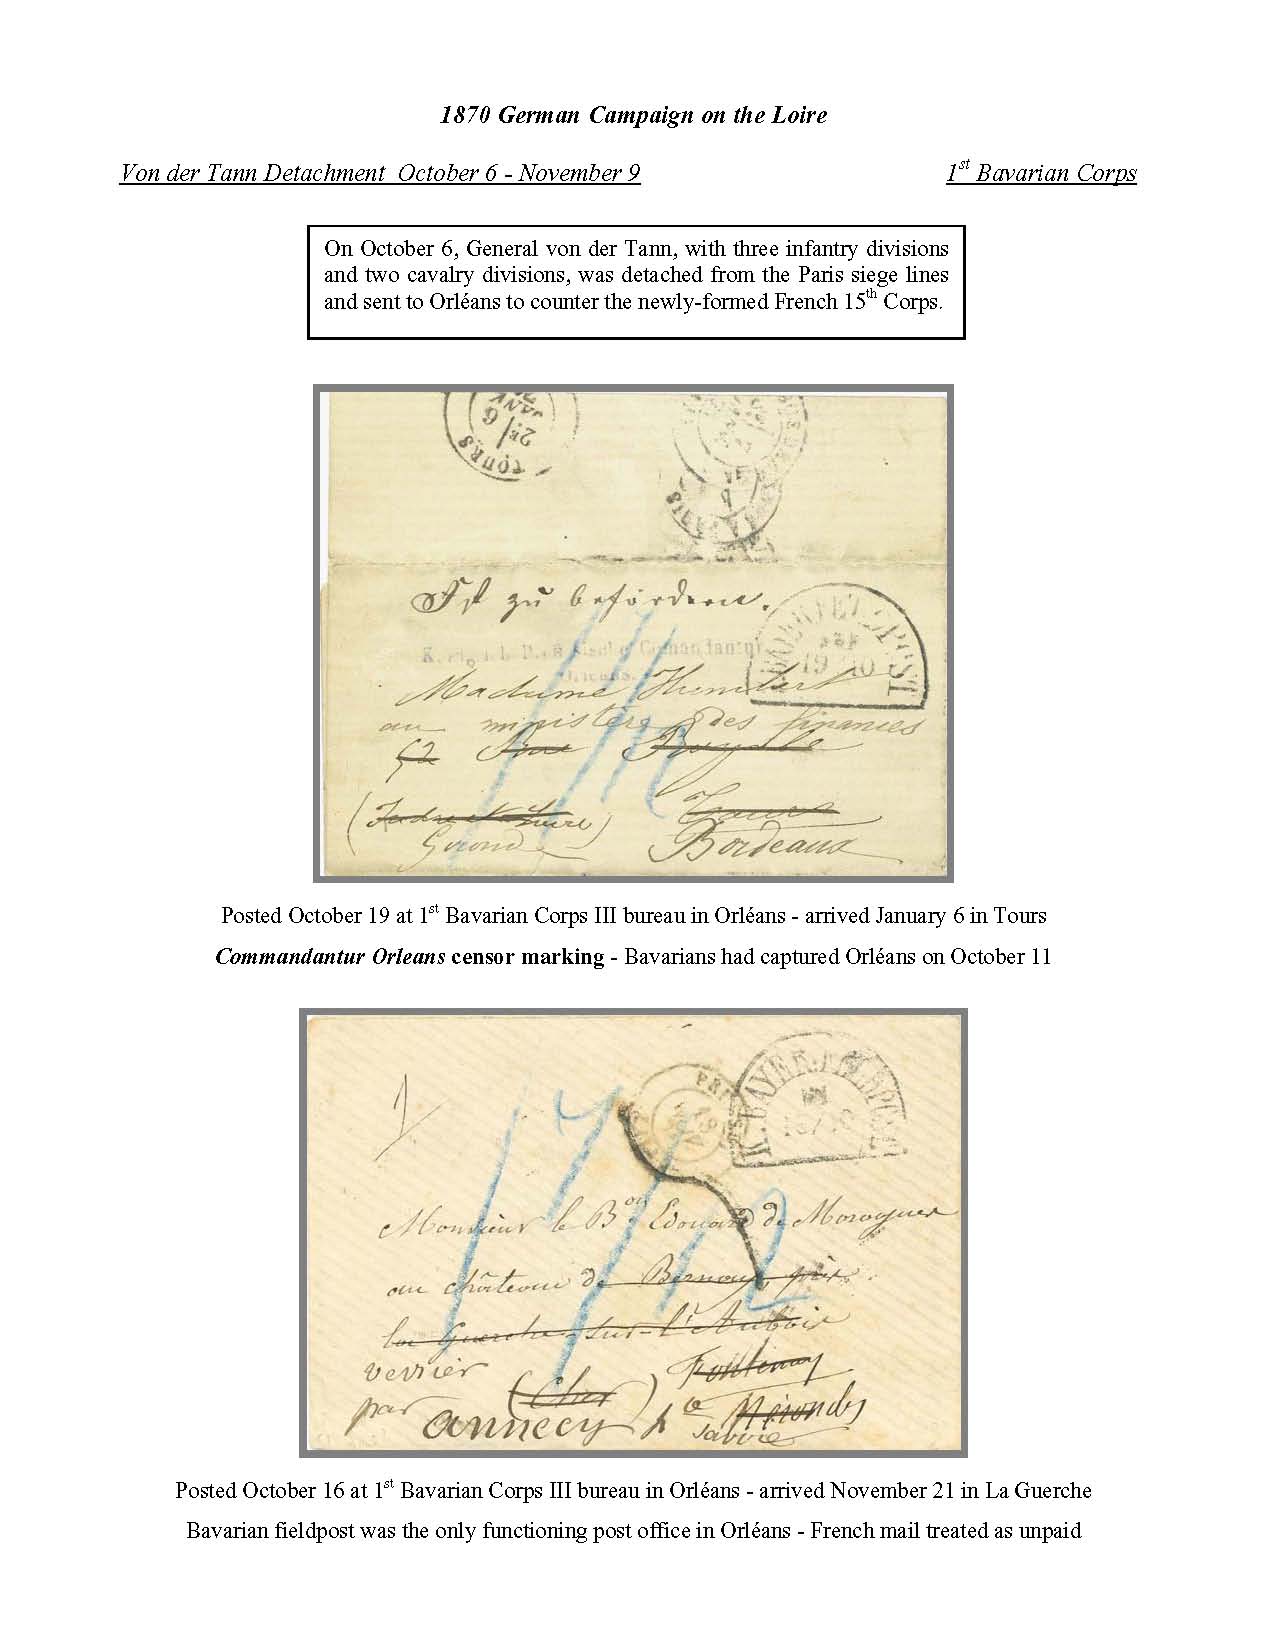 1870 German Campaign on the Loire
Von der Tann Detachment October 6 - November 9
1st Bavarian Corps
On October 6, General von der Tann, with three infantry divisions
and two cavalry divisions, was detached from the Paris siege lines
and sent to Orléans to counter the newly-formed French 15th Corps.
TOURS
6
JANV
Ist zu befördern.
FELDPOST
19 10
Madame Humbert
au ministère des finances
52 Rue Royale
(Indre et Loire) Tours
Gironde Bordeaux
Posted October 19 at 1st Bavarian Corps III bureau in Orléans - arrived January 6 in Tours
Commandantur Orleans censor marking - Bavarians had captured Orléans on October 11
K. BAYER. FELDPOST
Monsieur le Bon Edouard de Morogues
au château de
la Guerche-sur-l'Aubois
verrier (Cher) Fontenay
par annecy hte
Savoie
Posted October 16 at 1st Bavarian Corps III bureau in Orléans - arrived November 21 in La Guerche
Bavarian fieldpost was the only functioning post office in Orléans - French mail treated as unpaid